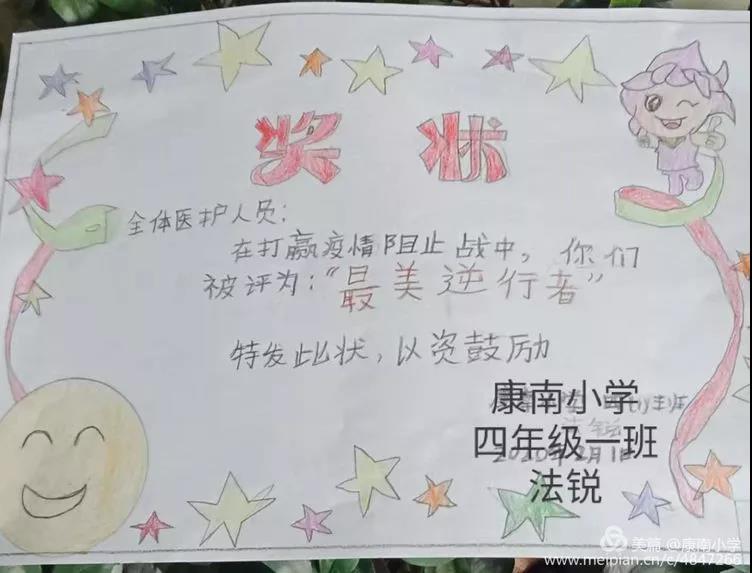 奖状
全体医护人员：
在打赢疫情阻止战中，你们
被评为："最美逆行者"
特发此状，以资鼓励
康南小学
四年级一班
法锐
美篇 @康南小学
www.meipian.cn/c/4847266